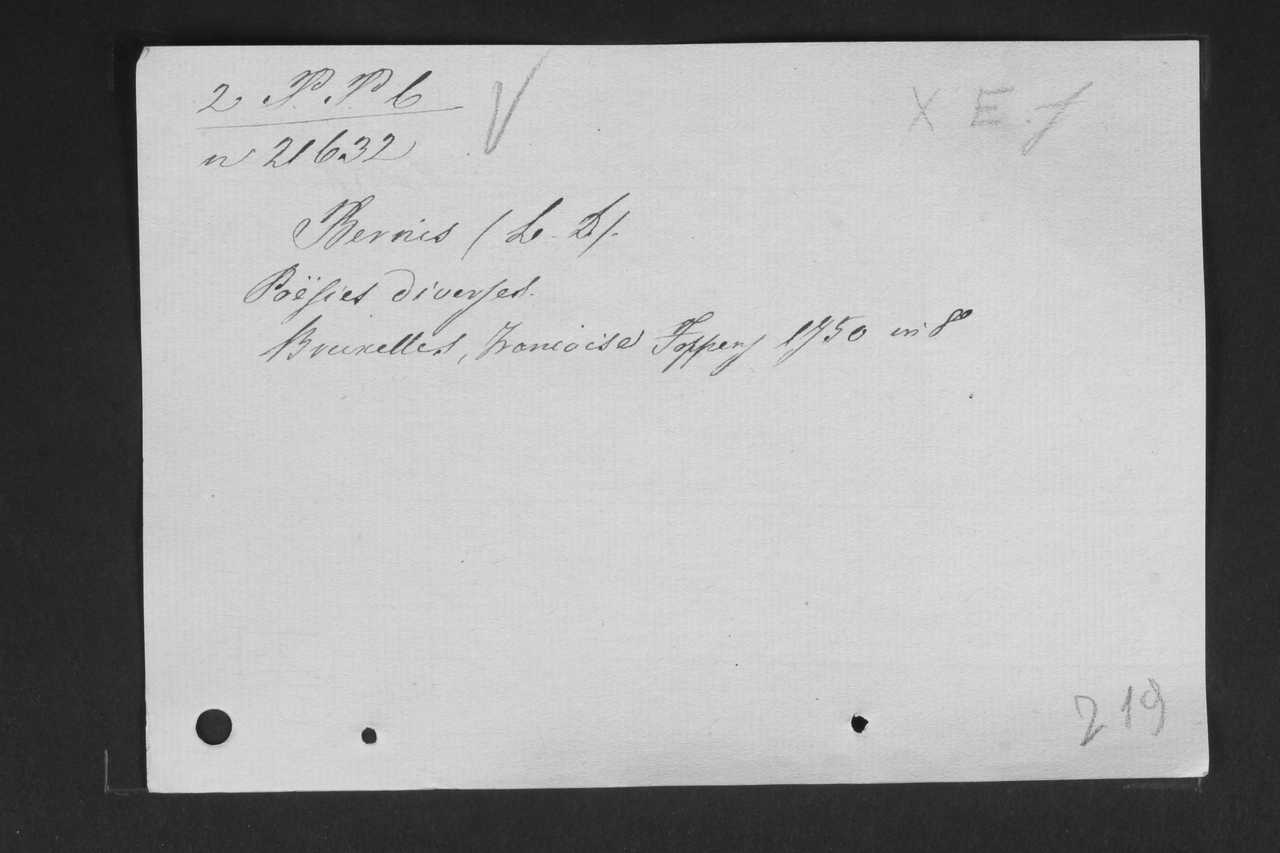 2 P. P. b
V
X E. f
n° 21632
Bernis (L. D).
Poësies diverses.
Bruxelles, Francoise Foppens 1750 in 8°
219